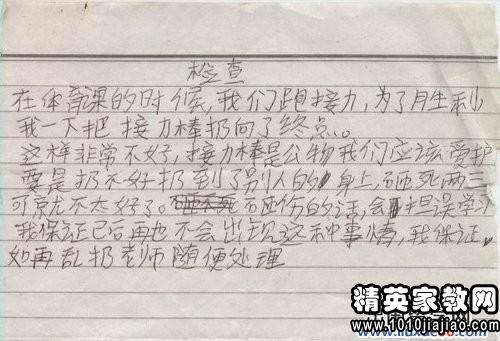 检查
在体育课的时候,我们跑接力,为了胜利
我一下把接力棒扔向了终点。
这样非常不好,接力棒是公物我们应该爱护
要是扔不好扔到了别人的身上,砸死两三
可就尤不太好了。砸不死砸伤的话,会担误学习
我保证已后再也不会出现这种事情,我保证
如再乱扔老师随便处理
精英家教网
www.1010jiajiao.com